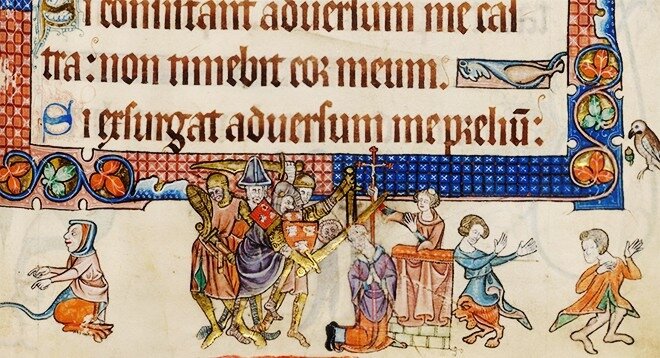 Si consistant adversum me cas
tra: non timebit cor meum.
Si exsurgat adversum me preliū: